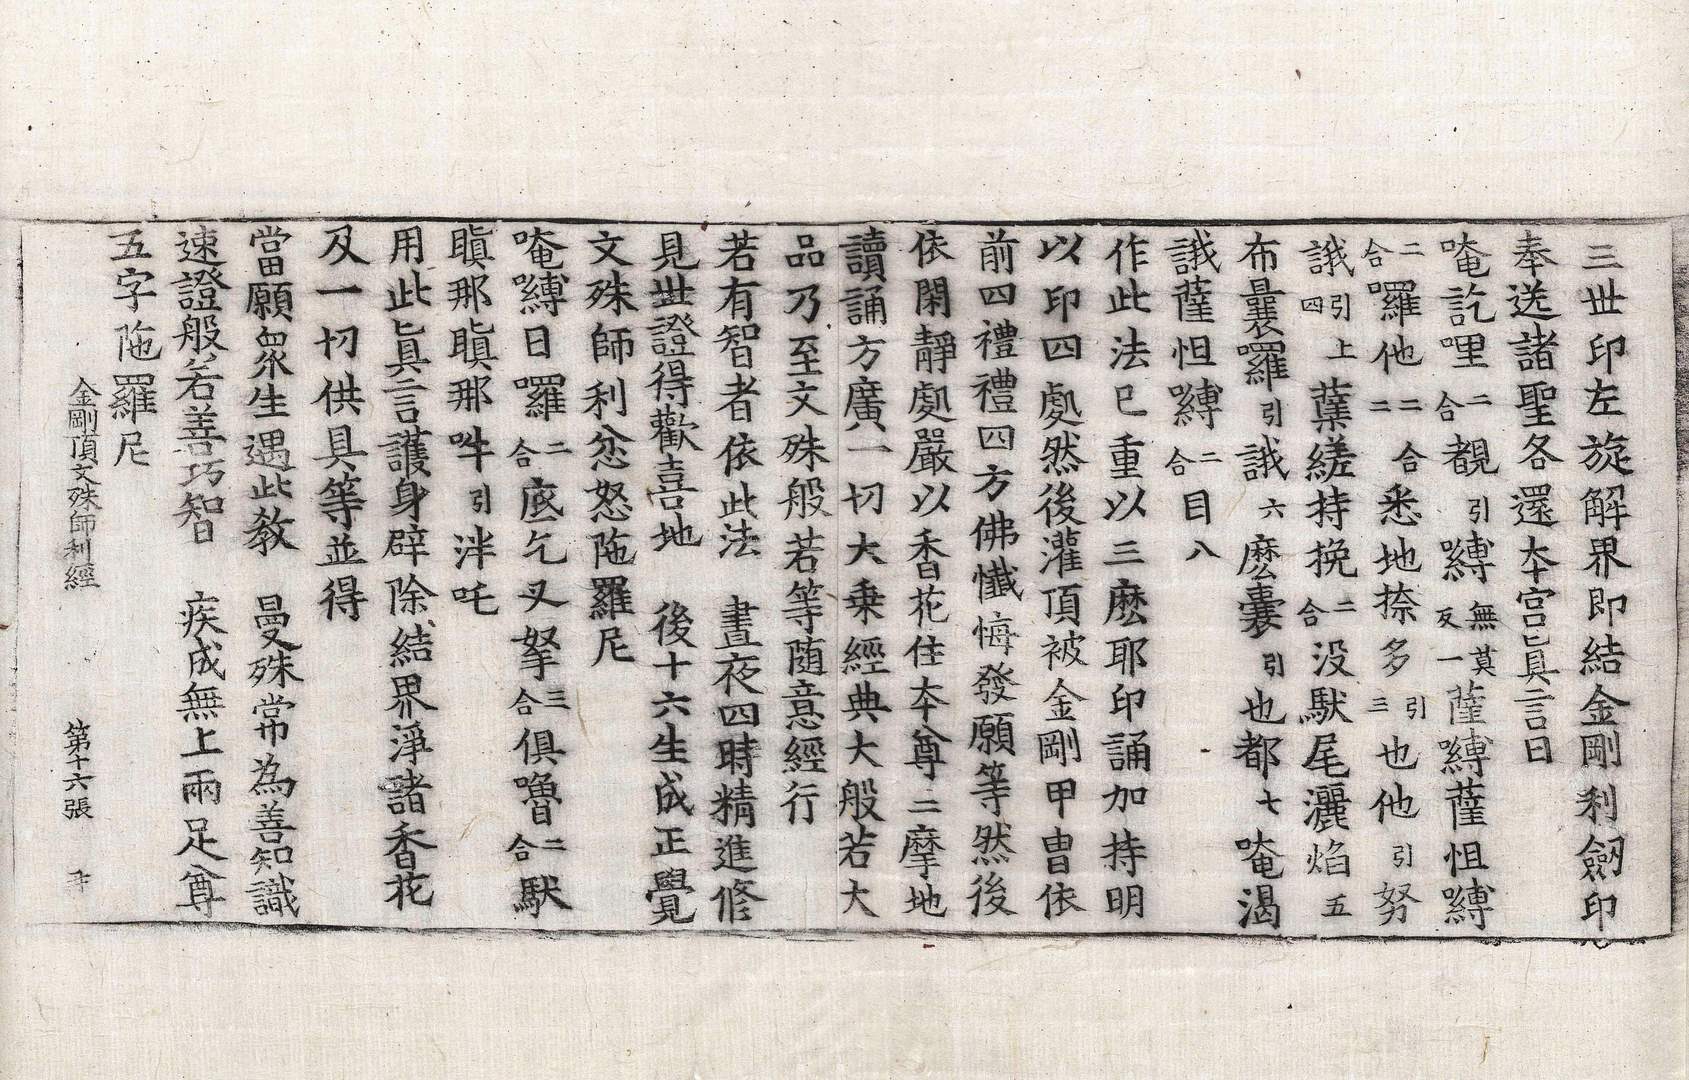 三世印左旋解界即結金剛利劒印
奉送諸聖各還本宮眞言曰
唵訖哩二合覩引嚩無莫反一薩嚩薩怛嚩
二合囉他二合二悉地捺多引三也他引努
誐引四上蘖縒持挽二合没馱尾灑焰五
布曩囉引誐六麽曩引也都七唵渴
誐薩怛嚩二合目八
作此法已重以三麽耶印誦加持明
以印四處然後灌頂被金剛甲冑依
前四禮禮四方佛懺悔發願等然後
依閑靜處嚴以香花住本尊三摩地
讀誦方廣一切大乗經典大般若大
品乃至文殊般若等随意經行
若有智者依此法　晝夜四時精進修
見世證得歡喜地　後十六生成正覺
文殊師利忿怒陁羅尼
唵嚩日囉二合底乞叉拏三合俱嚕二合馱
瞋那瞋那吽引泮吒
用此眞言護身辟除結界淨諸香花
及一切供具等並得
當願衆生遇此教　曼殊常為善知識
速證般若善巧智　疾成無上兩足尊
五字陁羅尼
金剛頂文殊師利經　第十六張